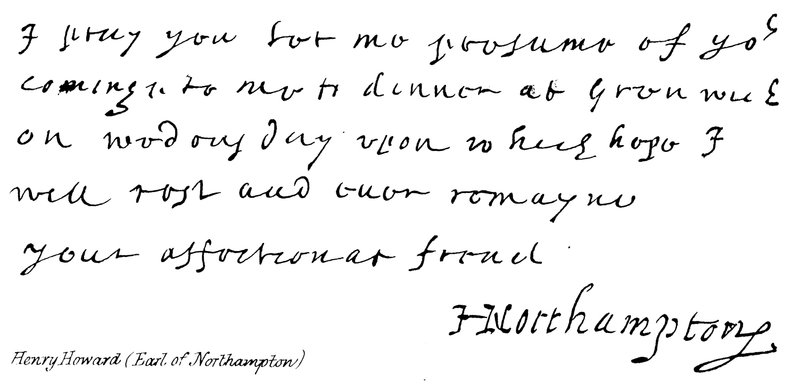 I pray you let me presume of yor
coming to me to dinner at Grenwich
on wedensday upon which hope I
will rest and ever remayne
your affectionat frend
H Northampton
Henry Howard (Earl of Northampton)